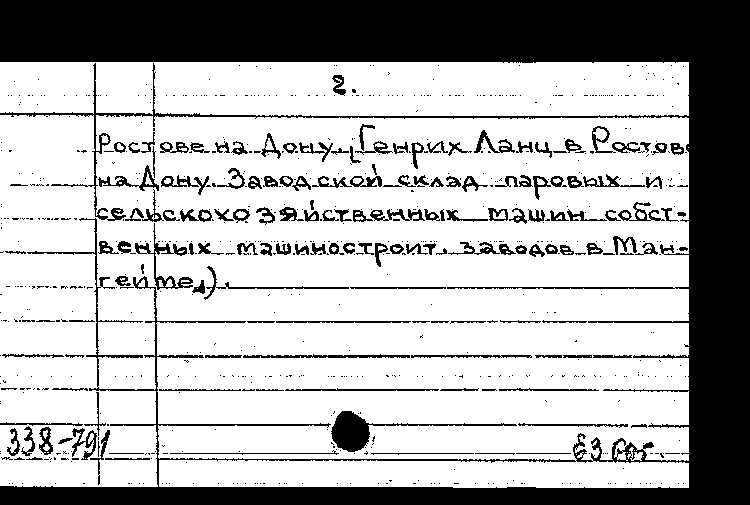 2.
Ростове на Дону. [Генрих Ланц в Ростове
на Дону. Заводской склад паровых и
сельскохозяйственных машин собст-
венных машиностроит. заводов в Ман-
гейме).
338-791
63